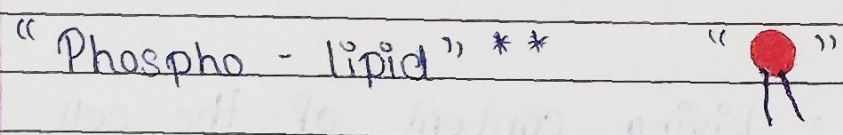 “ Phospho - lipid ” * * “ ”